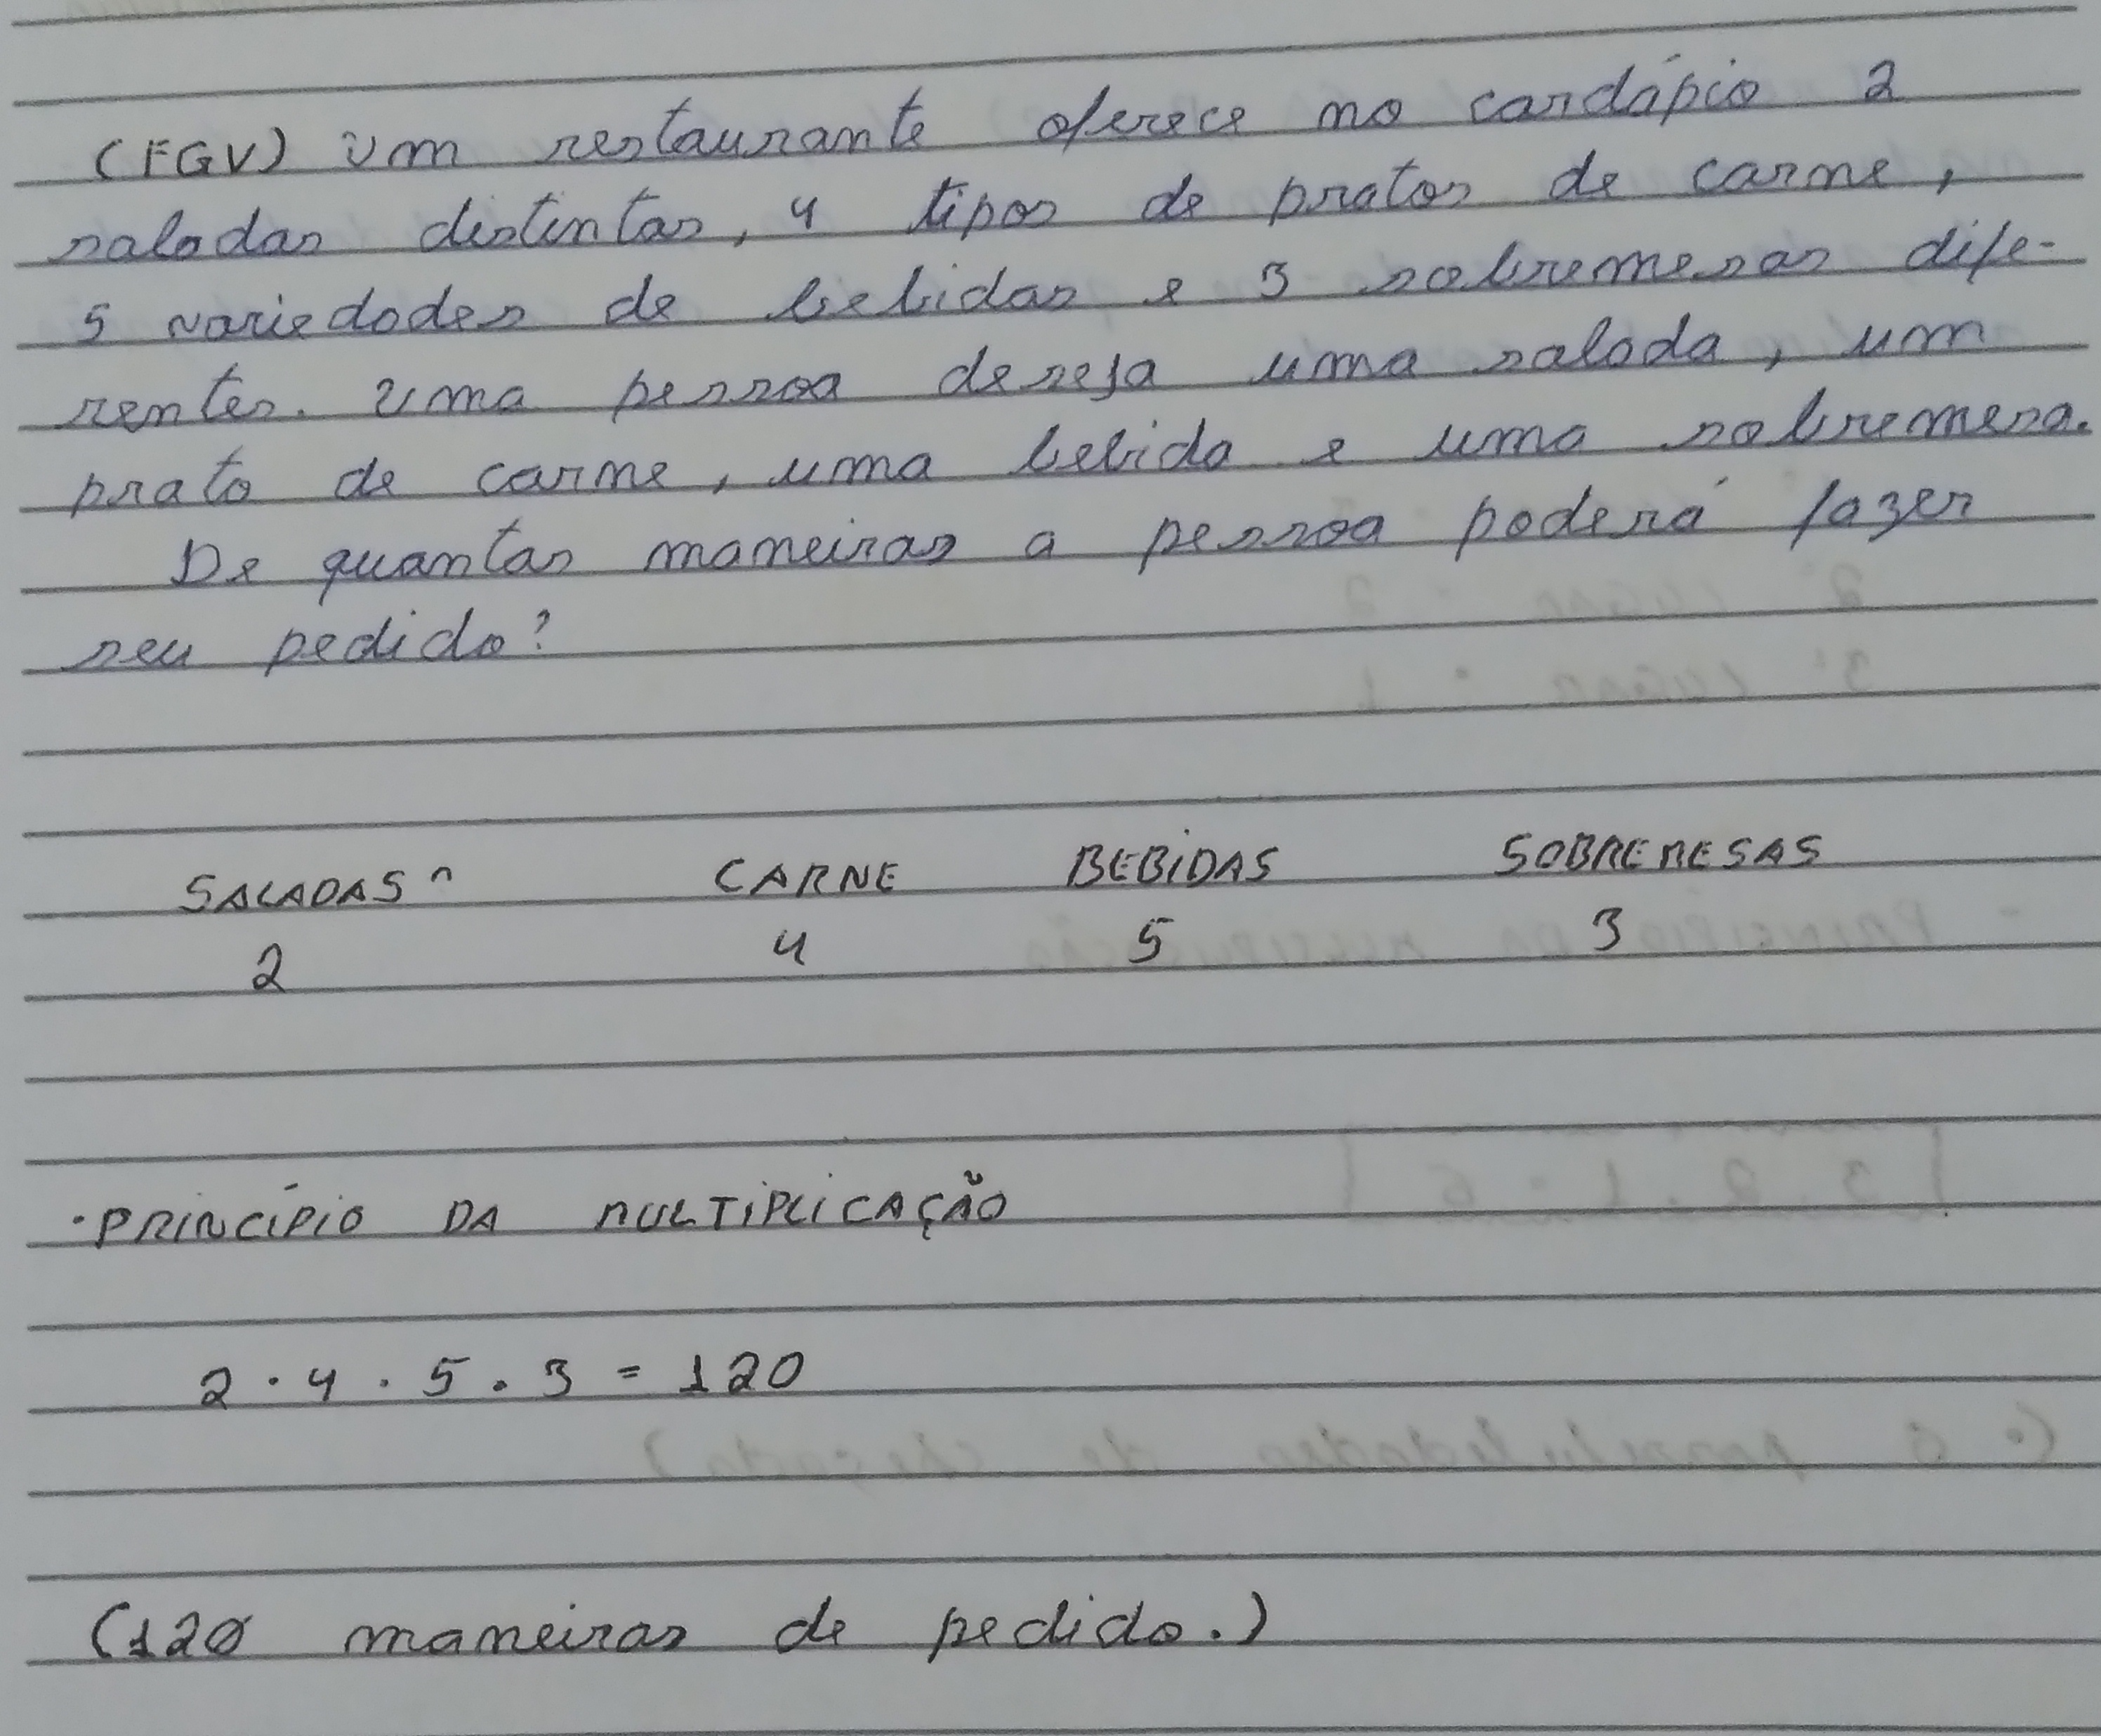 (FGV) Um restaurante oferece no cardápio 2
saladas distintas, 4 tipos de pratos de carne,
5 variedades de bebidas e 3 sobremesas dife-
rentes. Uma pessoa deseja uma salada, um
prato de carne, uma bebida e uma sobremesa.
De quantas maneiras a pessoa poderá fazer
seu pedido?
SALADAS CARNE BEBIDAS SOBREMESAS
2 4 5 3
·PRINCÍPIO DA MULTIPLICAÇÃO
2 · 4 · 5 . 3 = 120
(120 maneiras de pedido.)